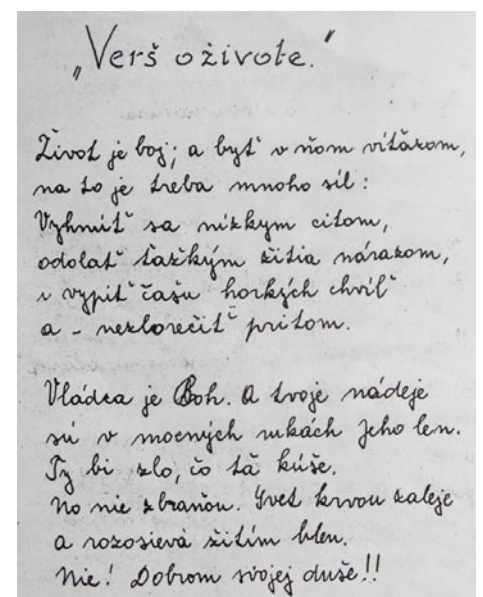 „Verš o živote."
Život je boj; a byť v ňom víťazom,
na to je treba mnoho síl:
Vyhnúť sa nízkym citom,
odolať ťažkým žitia nárazom,
i vypiť čašu horkých chvíľ
a - nezlorečiť pritom.
Vládca je Boh. A tvoje nádeje
sú v mocných rukách Jeho len.
Ty bi zlo, čo ťa kúše.
No nie zbraňou. Svet krvou zaleje
a rozosieva žitím blen.
Nie! Dobrom svojej duše!!